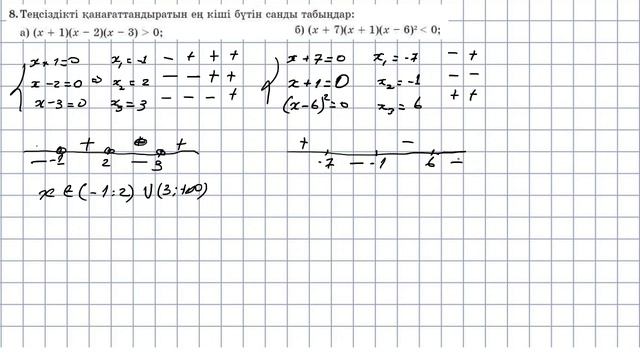 8. Теңсіздікті қанағаттандыратын ең кіші бүтін санды табыңдар:
а) (x + 1)(x − 2)(x − 3) > 0; б) (x + 7)(x + 1)(x − 6)² < 0;
x + 1 = 0 x₁ = -1 − + + + x + 7 = 0 x₁ = -7 − +
x − 2 = 0 ⇒ x₂ = 2 − − + + x + 1 = 0 x₂ = -1 − −
x − 3 = 0 x₃ = 3 − − − + (x − 6)² = 0 x₃ = 6 + +
+ + + −
− -1 2 − 3 -7 − -1 6 −
x ∈ (-1; 2) ∪ (3; +∞)